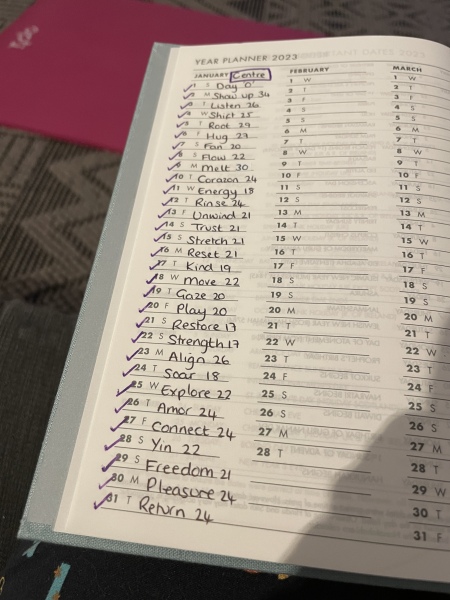 YEAR PLANNER 2023
JANUARY Centre
1 S Day 0
2 M Show up 34
3 T Listen 26
4 W Shift 25
5 T Root 29
6 F Hug 27
7 S Fan 20
8 S Flow 22
9 M Melt 30
10 T Corazon 24
11 W Energy 18
12 T Rinse 24
13 F Unwind 21
14 S Trust 21
15 S Stretch 21
16 M Reset 21
17 T Kind 19
18 W Move 22
19 T Gaze 20
20 F Play 20
21 S Restore 17
22 S Strength 17
23 M Align 26
24 T Soar 18
25 W Explore 22
26 T Amor 24
27 F Connect 24
28 S Yin 22
29 S Freedom 21
30 M Pleasure 24
31 T Return 24
FEBRUARY
1 W
2 T
3 F
4 S
5 S
6 M
7 T
8 W
9 T
10 F
11 S
12 S
13 M
14 T
15 W
16 T
17 F
18 S
19 S
20 M
21 T
22 W
23 T
24 F
25 S
26 S
27 M
28 T
MARCH
1 W
2 T
3 F
4 S
5 S
6 M
7 T
8 W
9 T
10 F
11 S
12 S
13 M
14 T
15 W
16 T
17 F
18 S
19 S
20 M
21 T
22 W
23 T
24 F
25 S
26 S
27 M
28 T
29 W
30 T
31 F